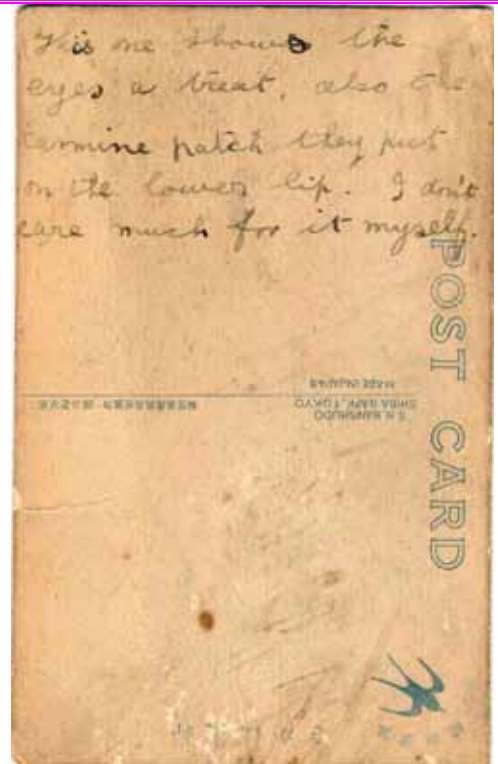 This one shows the
eyes a treat, also the
carmine patch they put
on the lower lip. I don't
care much for it myself.
POST CARD
SHIBA PARK, TOKYO
MADE IN JAPAN